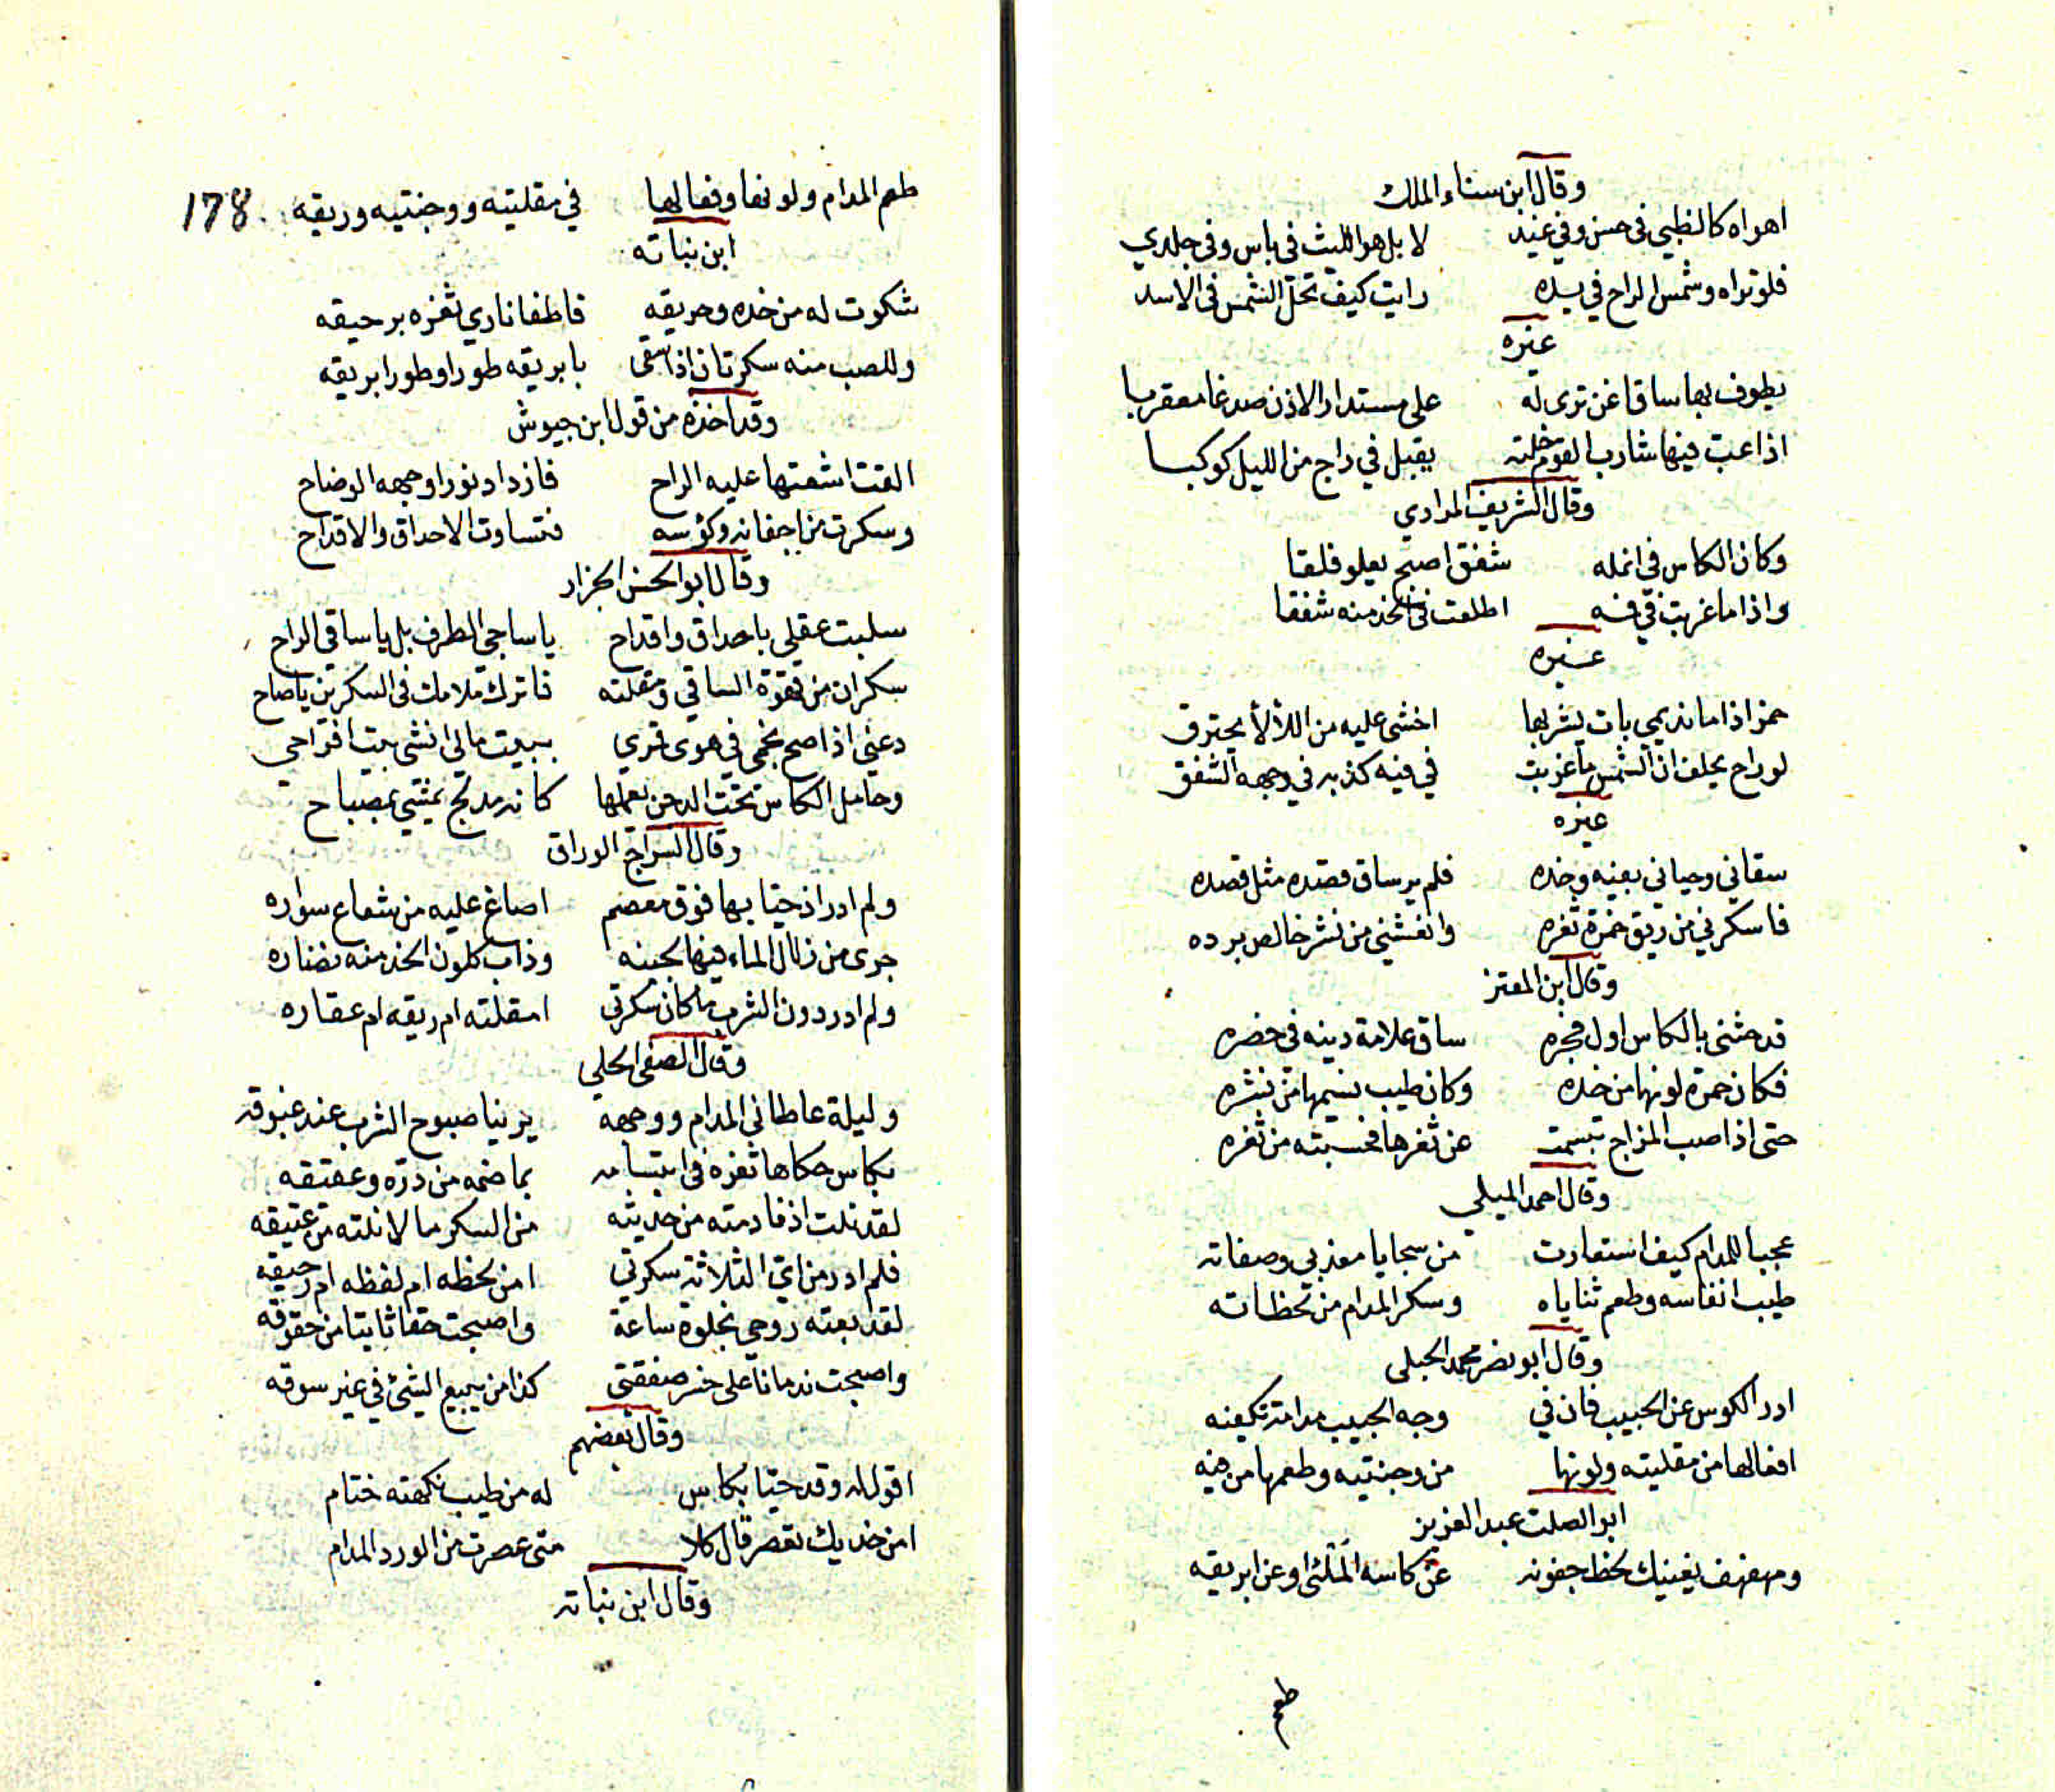 وقال ابن سناء الملك
اهواه كالظبي في حسن وفي غيد لا بل هو الليث في باس وفي جلدي
فلو تراه وشمس الراح في يده رايت كيف تحل الشمس في الاسد
غيره
يطوف بها ساق اغن ترى له على مستدار الاذن صدغا معقربا
اذا عب فيها شارب القوم خلته يقبل في داج من الليل كوكبا
وقال الشريف المرادي
وكان الكاس في انمله شفق اصبح يعلو فلقا
واذا ما غربت في فمه اطلعت في الخد منه شفقا
غيره
خمر اذا ما نديمي بات يشربها اخشى عليه من اللألأ يحترق
لو راح يحلف ان الشمس ما غربت في فيه كذبه في وجهه الشفق
غيره
سقاني وحياني بعينه وخده فلم ير ساق قصده مثل قصده
فاسكرني من ريق خمرة ثغره وانعشني من نشر خالص برده
وقال ابن المعتز
قد حثني بالكاس اول فجره ساق علامة دينه في خصره
فكان حمرة لونها من خده وكان طيب نسيمها من نشره
حتى اذا صب المزاج تبسمت عن ثغرها فحسبته من ثغره
وقال احمد الميلي
عجبا للمدام كيف استعارت من سجايا معذبي وصفاته
طيب انفاسه وطعم ثناياه وسكر المدام من لحظاته
وقال ابو نصر محمد الجبلي
ادر الكوس عن الحبيب فان في وجه الحبيب مدامة تكفينه
افعالها من مقليته ولونها من وجنتيه وطعمها من فيه
ابو الصلت عبد العزيز
ومهفهف يغنيك لحظ جفونه عن كاسه الملئى وعن ابريقه
طعم
طعم المدام ولونها وفعالها في مقليته ووجنتيه وريقه 178
ابن نباته
شكوت له من خده وحريقه فاطفا ناري ثغره برحيقه
وللصب منه سكرتان اذا سقى بابريقه طورا وطورا بريقه
وقد اخذه من قول ابن حيوش
القت اشعتها عليه الراح فازداد نورا وجهه الوضاح
وسكرت من اجفانه وكؤسه فتساوت الاحداق والاقداح
وقال ابو الحسن الجزار
سلبت عقلي باحداق واقداح يا ساجي الطرف بل يا ساقي الراح
سكران من قهوة الساقي ومقلته فاترك ملامك في السكرين يا صاح
دعني اذا صح نجمي في هوى قمري ببيت مالي انشي بيت افراحي
وحامل الكاس تحت الدجن يعملها كانه مدلج يمشي بمصباح
وقال السراج الوراق
ولم ادر اذ حيا بها فوق معصم اصاغ عليه من شعاع سواره
جرى من زلال الماء فيها لجينه وذاب كلون الخد منه نضاره
ولم ادر دون الشرب ما كان سكرتي امقلته ام ريقه ام عقاره
وقال الصفي الحلي
وليلة عاطاني المدام ووجهه يرنيا صبوح الشرب عند غبوقه
بكاس حكاها ثغره في ابتسامه بما ضمه من دره وعقيقه
لقد نلت اذ نادمته من حديثه من السكر ما لا نلته من عتيقه
فلم ادر من اي الثلاثة سكرتي امن لحظه ام لفظه ام رحيقه
لقد بعته روحي بخلوة ساعة واصبحت حقا ثابتا من حقوقه
واصبحت ندمانا على خسر صفقتي كذا من يبيع الشئ في غير سوقه
وقال بعضهم
اقول له وقد حيا بكاس له من طيب نكهته ختام
امن خديك تعصر قال كلا متى عصرت من الورد المدام
وقال ابن نباته